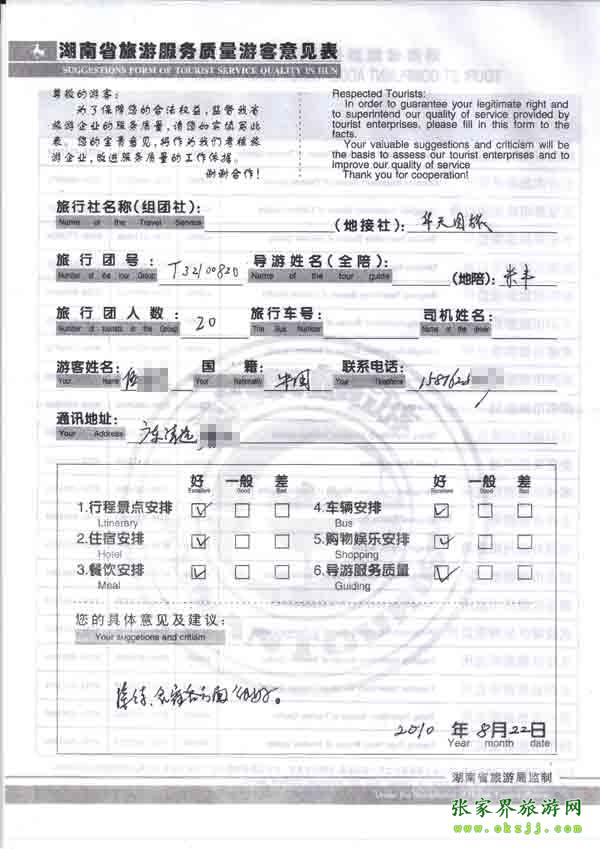 湖南省旅游服务质量游客意见表
SUGGESTIONS FORM OF TOURIST SERVICE QUALITY IN HUN
尊敬的游客:
为了保障您的合法权益,监督我省
旅游企业的服务质量,请您如实填写此
表。您的宝贵意见,将作为我们考核旅
游企业,改进服务质量的工作依据。
谢谢合作!
Respected Tourists:
In order to guarantee your legitimate right and
to superintend our quality of service provided by
tourist enterprises, please fill in this form to the
facts.
Your valuable suggestions and criticism will be
the basis to assess our tourist enterprises and to
improve our quality of service
Thank you for cooperation!
旅行社名称(组团社): (地接社): 华天国旅
Name of the Travel Service
旅行团号: T32100820 导游姓名(全陪): (地陪):
Number of the tour Group Name of the tour guide
旅行团人数: 20 旅行车号: 司机姓名:
Number of tourists in the Group The Bus Number Name of the driver
游客姓名: 国籍: 中国 联系电话: 1587622
Your Name Your Nationality Your Telephone
通讯地址: 广东清远
Your Address
好 一般 差 好 一般 差
Excellent Good Bad Excellent Good Bad
1.行程景点安排 4.车辆安排
Ltinerary Bus
2.住宿安排 5.购物娱乐安排
Hotel Shopping
3.餐饮安排 6.导游服务质量
Meal Guiding
您的具体意见及建议:
Your suggetions and critism
2010 年 8月22日
Year month date
湖南省旅游局监制
张家界旅游网
www.okzjj.com